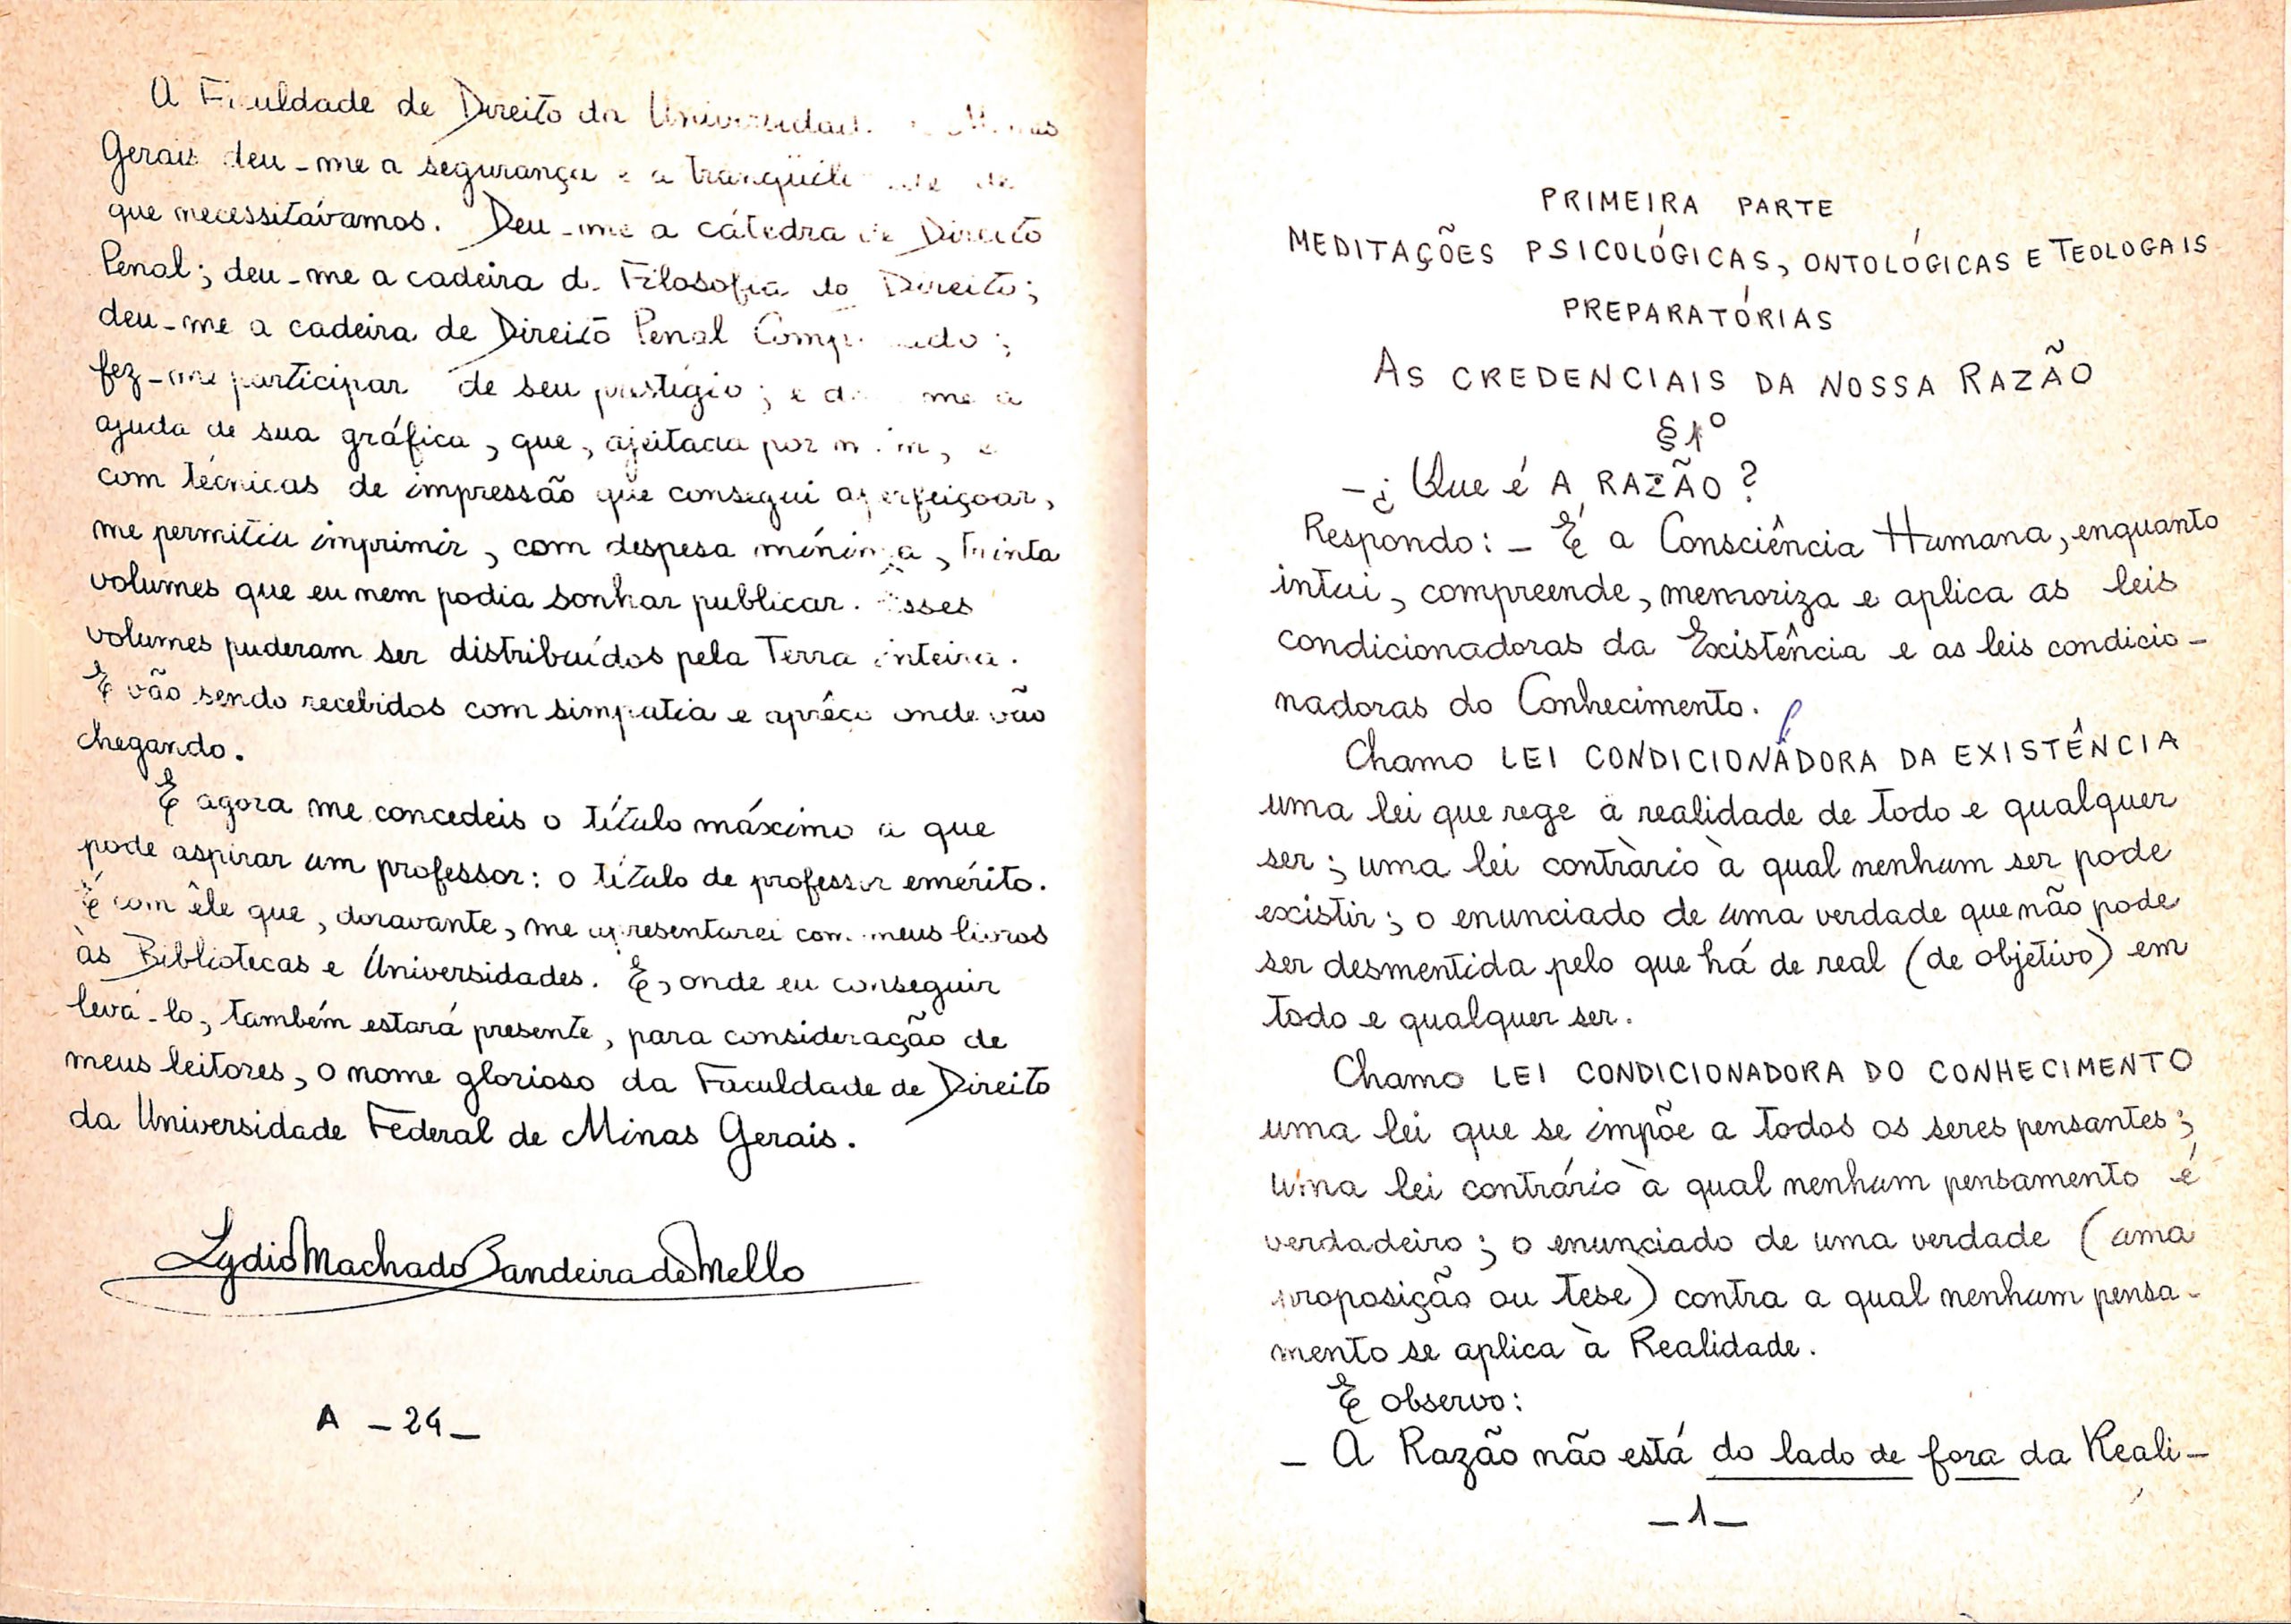 A Faculdade de Direito da Universidade de Minas
Gerais deu-me a segurança e a tranqüilidade de
que necessitávamos. Deu-me a cátedra de Direito
Penal; deu-me a cadeira de Filosofia do Direito;
deu-me a cadeira de Direito Penal Comparado;
fez-me participar de seu prestígio; e deu-me a
ajuda de sua gráfica, que, ajeitada por mim, e
com técnicas de impressão que consegui aperfeiçoar,
me permitiu imprimir, com despesa mínima, trinta
volumes que eu nem podia sonhar publicar. Esses
volumes puderam ser distribuídos pela Terra inteira.
E vão sendo recebidos com simpatia e aprêço onde vão
chegando.
E agora me concedeis o título máximo a que
pode aspirar um professor: o título de professor emérito.
É com êle que, doravante, me apresentarei com meus livros
às Bibliotecas e Universidades. E, onde eu conseguir
levá-lo, também estará presente, para consideração de
meus leitores, o nome glorioso da Faculdade de Direito
da Universidade Federal de Minas Gerais.
Lydio Machado Bandeira de Mello
A - 24 -
PRIMEIRA PARTE
MEDITAÇÕES PSICOLÓGICAS, ONTOLÓGICAS E TEOLOGAIS
PREPARATÓRIAS
AS CREDENCIAIS DA NOSSA RAZÃO
§1º
-¿ Que é A RAZÃO?
Respondo: - É a Consciência Humana, enquanto
intui, compreende, memoriza e aplica as leis
condicionadoras da Existência e as leis condicio-
nadoras do Conhecimento.
Chamo LEI CONDICIONADORA DA EXISTÊNCIA
uma lei que rege a realidade de todo e qualquer
ser; uma lei contràrio à qual nenhum ser pode
existir; o enunciado de uma verdade que não pode
ser desmentida pelo que há de real (de objetivo) em
todo e qualquer ser.
Chamo LEI CONDICIONADORA DO CONHECIMENTO
uma lei que se impõe a todos os seres pensantes;
uma lei contrário à qual nenhum pensamento é
verdadeiro; o enunciado de uma verdade (uma
proposição ou tese) contra a qual nenhum pensa-
mento se aplica à Realidade.
E observo:
- A Razão não está do lado de fora da Reali-
-1-